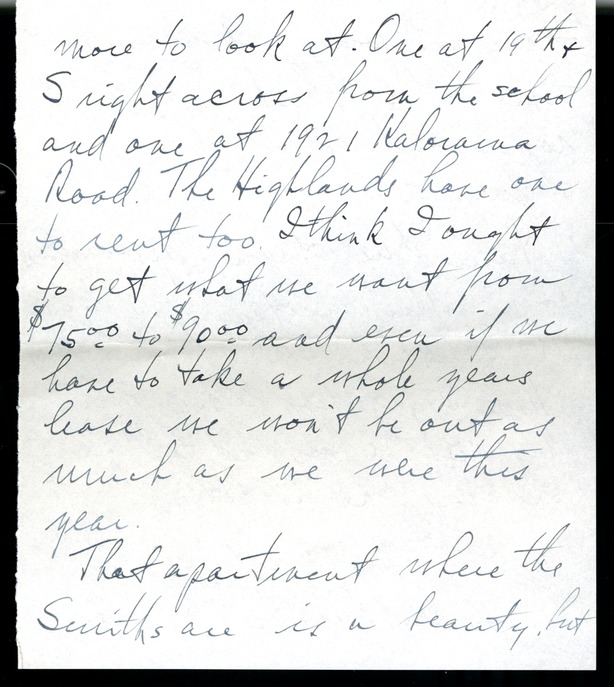 more to look at. One at 19th &
S right across from the school
and one at 1921 Kalorama
Road. The Highlands have one
to rent too. I think I ought
to get what we want from
$75.00 to $90.00 and even if we
have to take a whole years
lease we won't be out as
much as we were this
year.
That apartment where the
Smiths are is a beauty, but